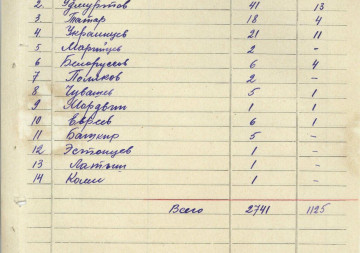 2. Удмуртов 41 13
3. Татар 18 4
4 Украинцев 21 11
5 Марийцев 2 -
6 Белоруссов 6 4
7 Поляков 2 -
8 Чувашей 5 1
9 Мордвин 1 1
10 Евреев 6 1
11 Башкир 5 -
12 Эстонцев 1 -
13 Латыш 1 -
14 Коми 1 -
Всего 2741 1125